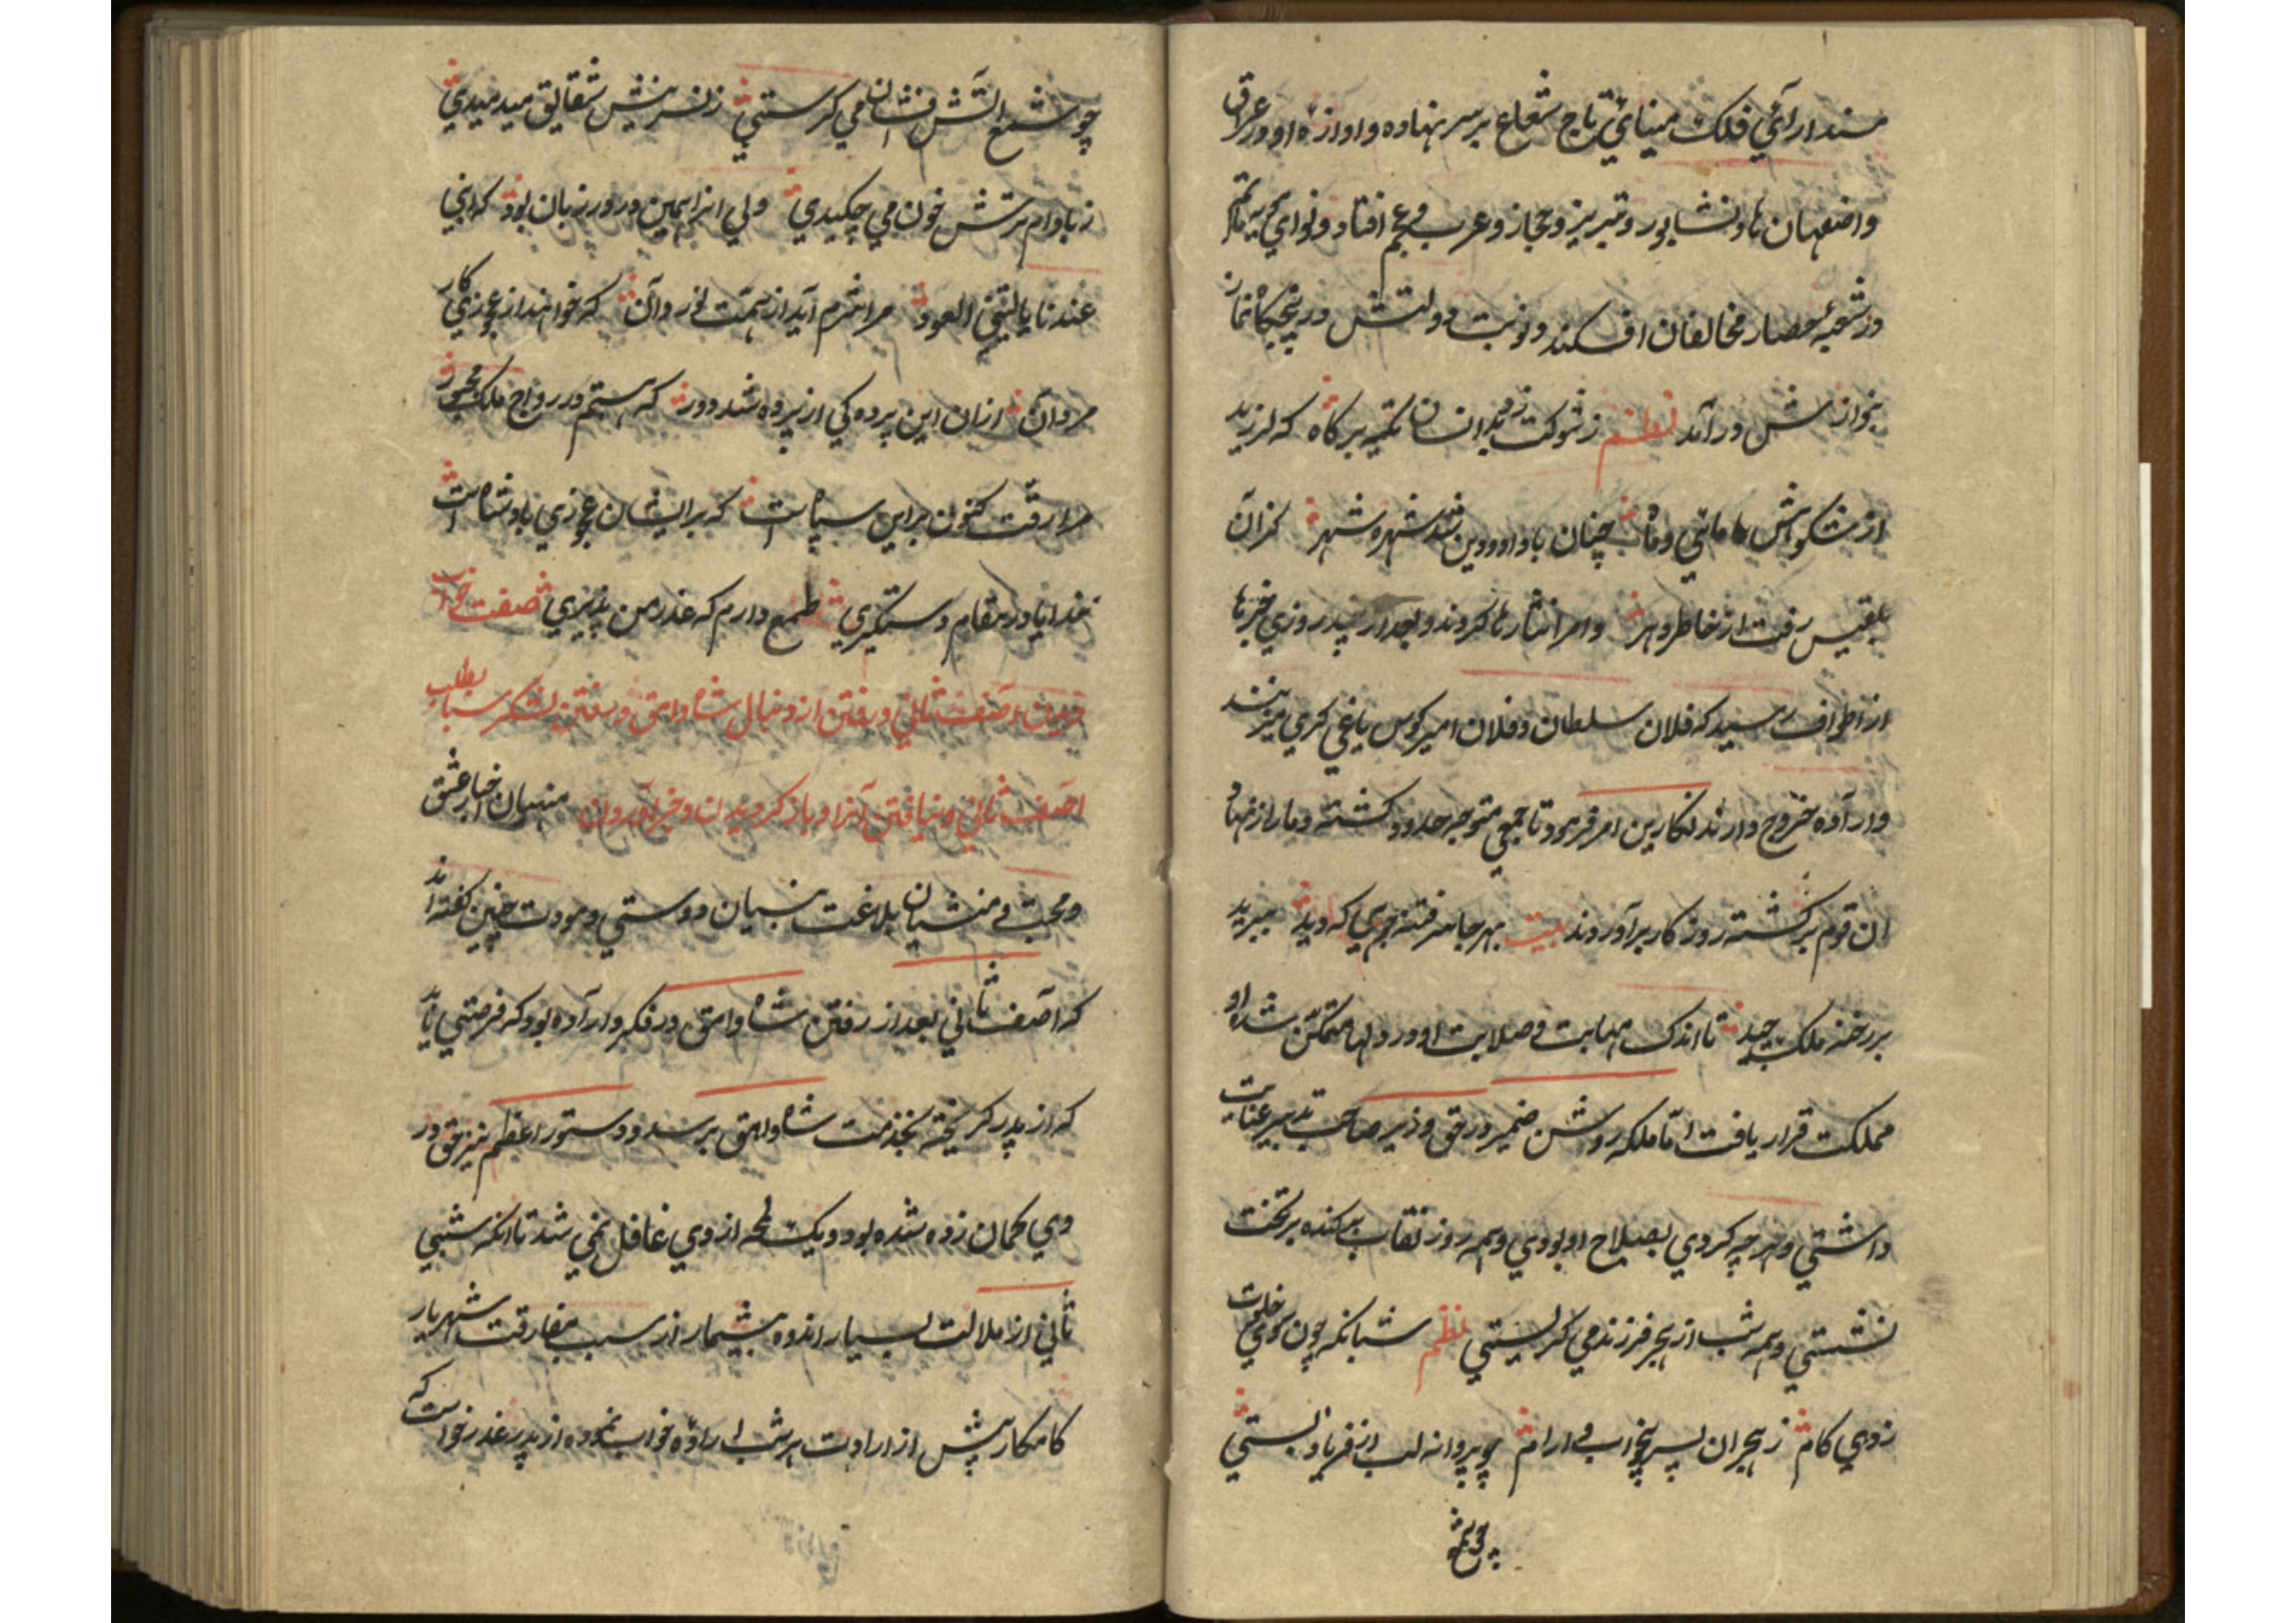 مسند آرائي فلک مينائي تاج شعاع بر سر نهاده و اوازهٔ او در عراق
و اصفهان و نشابور و تبريز و حجاز و عرب و عجم افتاد و نواي
در شعبهٔ حصار مخالفان افکند و نوبت دولتش در پنجگاه نماز
بنوازش در آمد نظم ز شوکت زد بدانسان تکيه بر کاه که لرزيد
از شکوهش ماهي و ماه چنان با داد و دين شد شهره شهر کزان
بلقيس رفت از خاطر دهر و امرا نثارها کردند و بعد از چند روزي خبرها
از اطراف رسيد که فلان سلطان و فلان امير کوس ياغي کري ميزنند
و ارادهٔ خروج دارند نکارين امر فرمود تا جمعي متوجه حدود کشته دمار از نهاد
ان قوم بر کشته روز کار برآوردند بيت بهر جا هر فتنه جوي که ديد ببريد
بر رخنه ملک چيد تا اندک مهابت و صلابت او در دلها متمکن شد و او
مملکت قرار يافت اما ملکه روشن ضمير در حق وزير صاحب تدبير عنايت
داشتي و هر چه کردي بصلاح او بودي و همه روز نقاب بر کنده بر تخت
نشستي و همه شب از هجر فرزند مي کريستي نظم شبانکه چون کوي خلوت
زدي کام ز هجران پسر بيخواب و ارام چو پروانه لب از فرياد بستي
چو شمع
چو شمع آتش افشان مي کرستي ز نسرينش شقايق ميدميدي
ز بادام ترش خون مي چکيدي ولي از انهمين ورد زبان بود که اني
عندنا ياليتني العود مرا شرم آيد از همت نور دان که خواهند از عجوزي کار
مردان ازان اين پرده کي از پرده شد دور که هستم در رواج ملک مجبور
مرا رقت کنون بر اين سپاه است که بر ايشان عجوزي پادشاه است
خدايا در مقام دستکيري طمع دارم که عذر من پذيري صفت خواب
ديدن آصف ثاني و رفتن از دنبال شاه وامق و رفتن لشکر سبا بطلب
اصف ثاني و نيافتن آنرا و باز کرديدن و خبر آوردن منهيان اخبار عشق
و محبت و منشيان بلاغت بنيان دوستي و مودت چنين کفته اند
که آصف ثاني بعد از رفتن شاه وامق در فکر و اراده بود که فرصتي يابد
که از پدر کريخته بخدمت شاه وامق برسد و دستور اعظم نيز حق در
وي کمان زده شده بود و يک لمحه از وي غافل نمي شد تا انکه شبي
ثاني از ملالت بسيار اندوه بيشمار از سبب مفارقت شهريار
کامکار پيش از ارادت هر شب ارادهٔ خواب نموده از پدر عذر خواست که